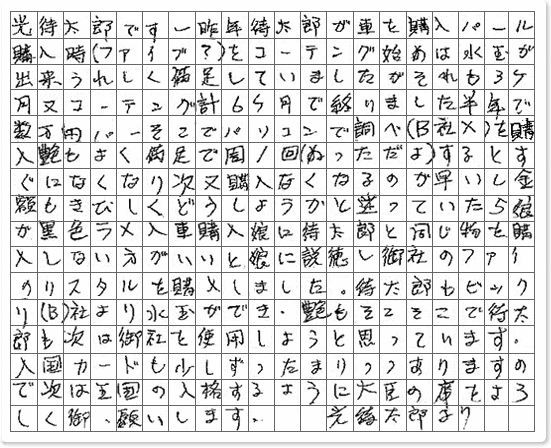 光待太郎です―昨年待太郎が車を購入パール
購入時(ファイブ?)をコーテング始めは水玉が
出来うれしく満足していましたがそれも3ケ
月又コーテング計6ケ月で終りました半年で
数万円パーそこでパソコンで調べ(B社×)を購
入艶もよく満足で周1回(ぬっただよ)するとす
ぐになくなり次又購入なくなるのが早いし金
額もきびしくどうしようかと迷っていたら娘
が黒色ラメ入車購入娘に待太郎と同じ物を購
入しない方がいいと娘に説徳し御社のファイ
のリスタルを購入しました。待太郎もビック
リ(B)社より水玉ができ.艶もそこそこで待太
郎も次は御社を使用しようと思っています.
入国カードも少しずったまりつつありますの
で次は王国の入格するように大臣の席をよろ
しく御.願いします. 光待太郎より